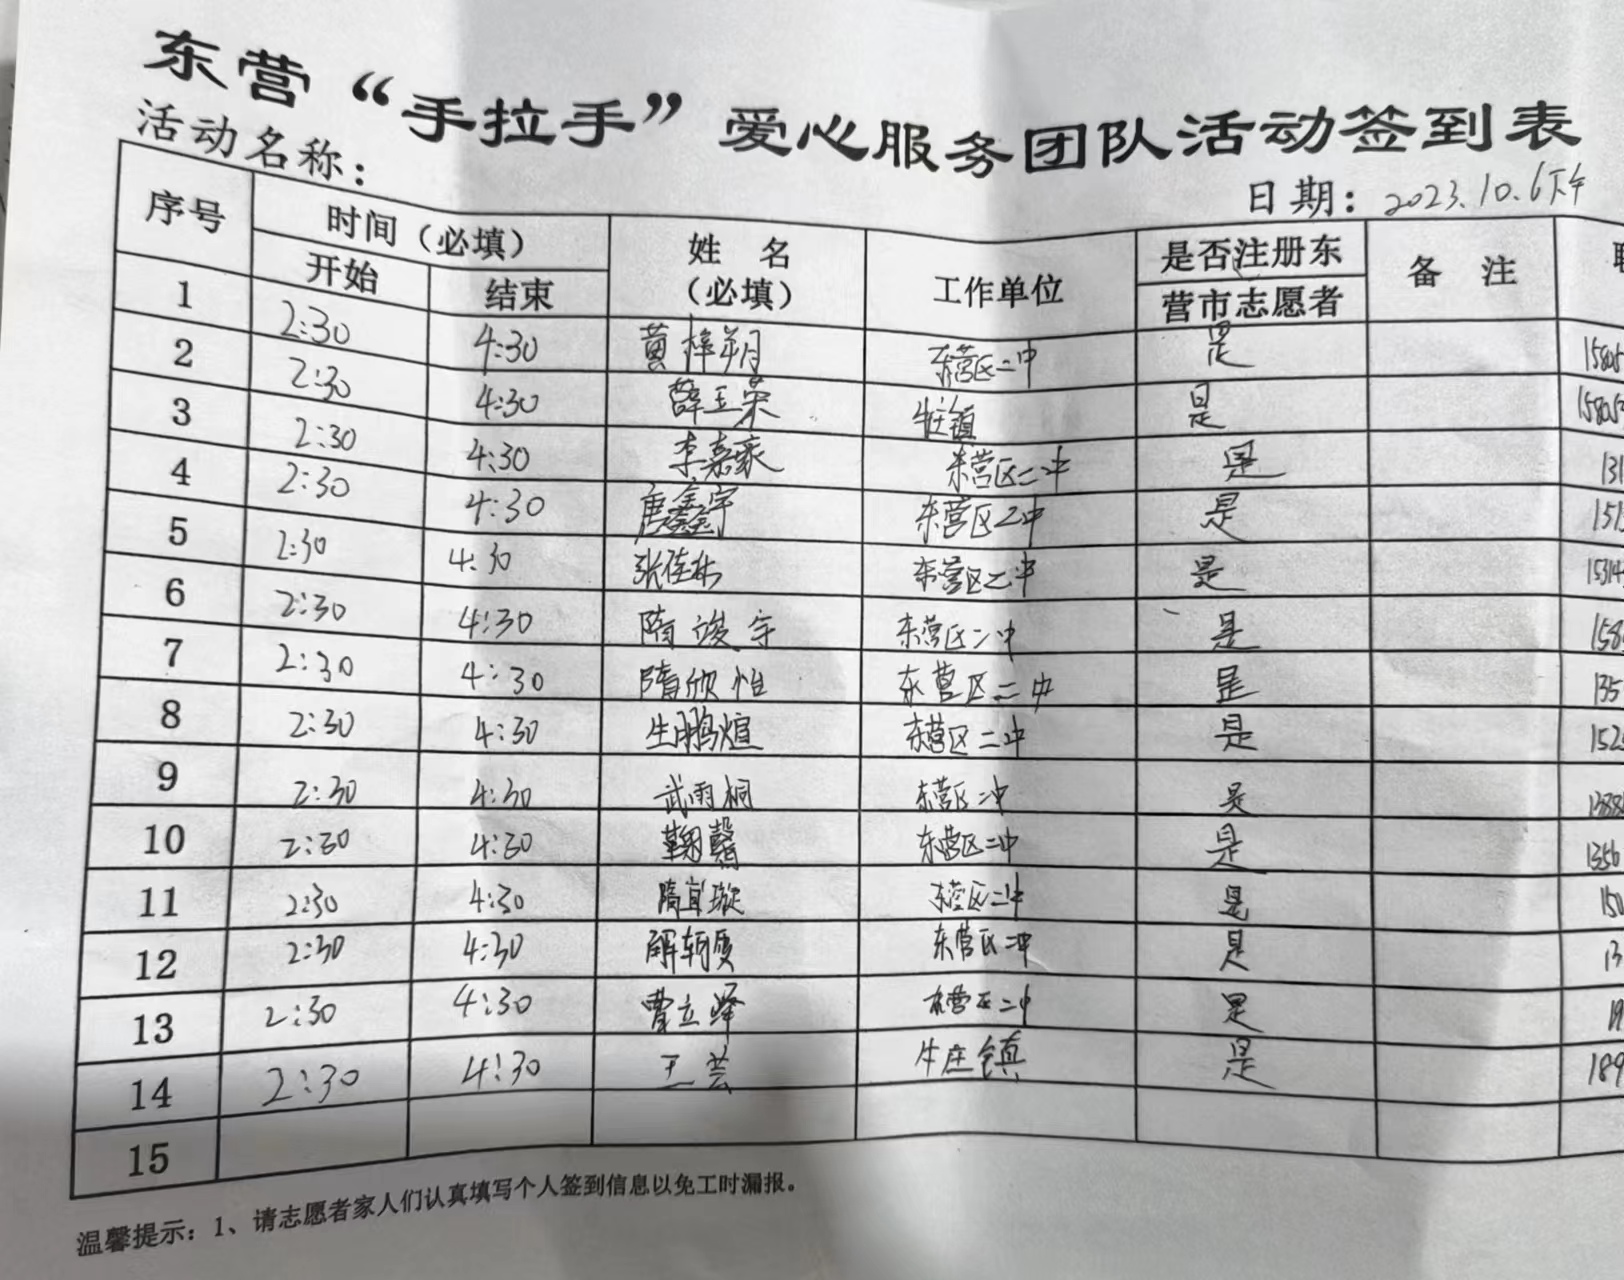 东营“手拉手”爱心服务团队活动签到表
活动名称：
日期：2023.10.6下午
序号 时间（必填） 姓 名 工作单位 是否注册东 备 注
开始 结束 （必填） 营市志愿者
1 2:30 4:30 黄梓朔 东营区二中 是 15805
2 2:30 4:30 薛玉荣 牛庄镇 是 15805
3 2:30 4:30 李嘉豪 东营区二中 是 131
4 2:30 4:30 唐鑫宇 东营区二中 是 151
5 2:30 4:30 张佳 东营区二中 是 15314
6 2:30 4:30 隋竣宇 东营区二中 是 158
7 2:30 4:30 隋欣怡 东营区二中 是 135
8 2:30 4:30 生鹏煊 东营区二中 是 152
9 2:30 4:30 武雨桐 东营区二中 是 1388
10 2:30 4:30 鞠馨 东营区二中 是 1356
11 2:30 4:30 隋宜璇 东营区二中 是 150
12 2:30 4:30 解 东营区二中 是 13
13 2:30 4:30 曹立峰 东营区二中 是 19
14 2:30 4:30 王芸 牛庄镇 是 189
15
温馨提示：1、请志愿者家人们认真填写个人签到信息以免工时漏报。